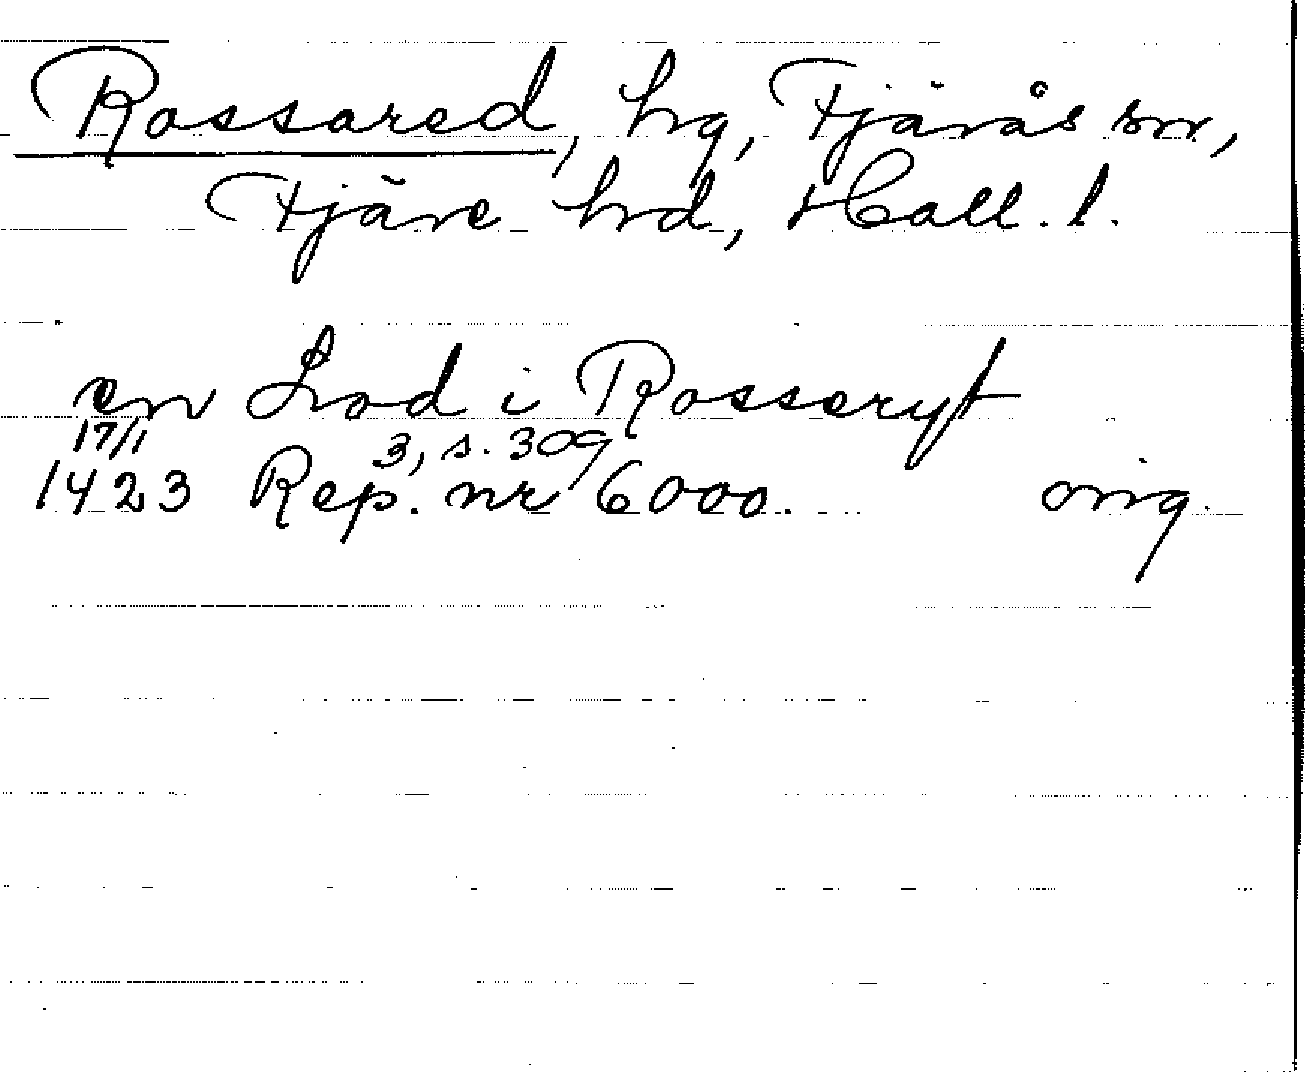 Rossared, hg, Fjärås sn,
Fjäre hd, Hall. l.
en Lod i Rosseryt
17/1 3, s. 309
1423 Rep. nr 6000. orig.